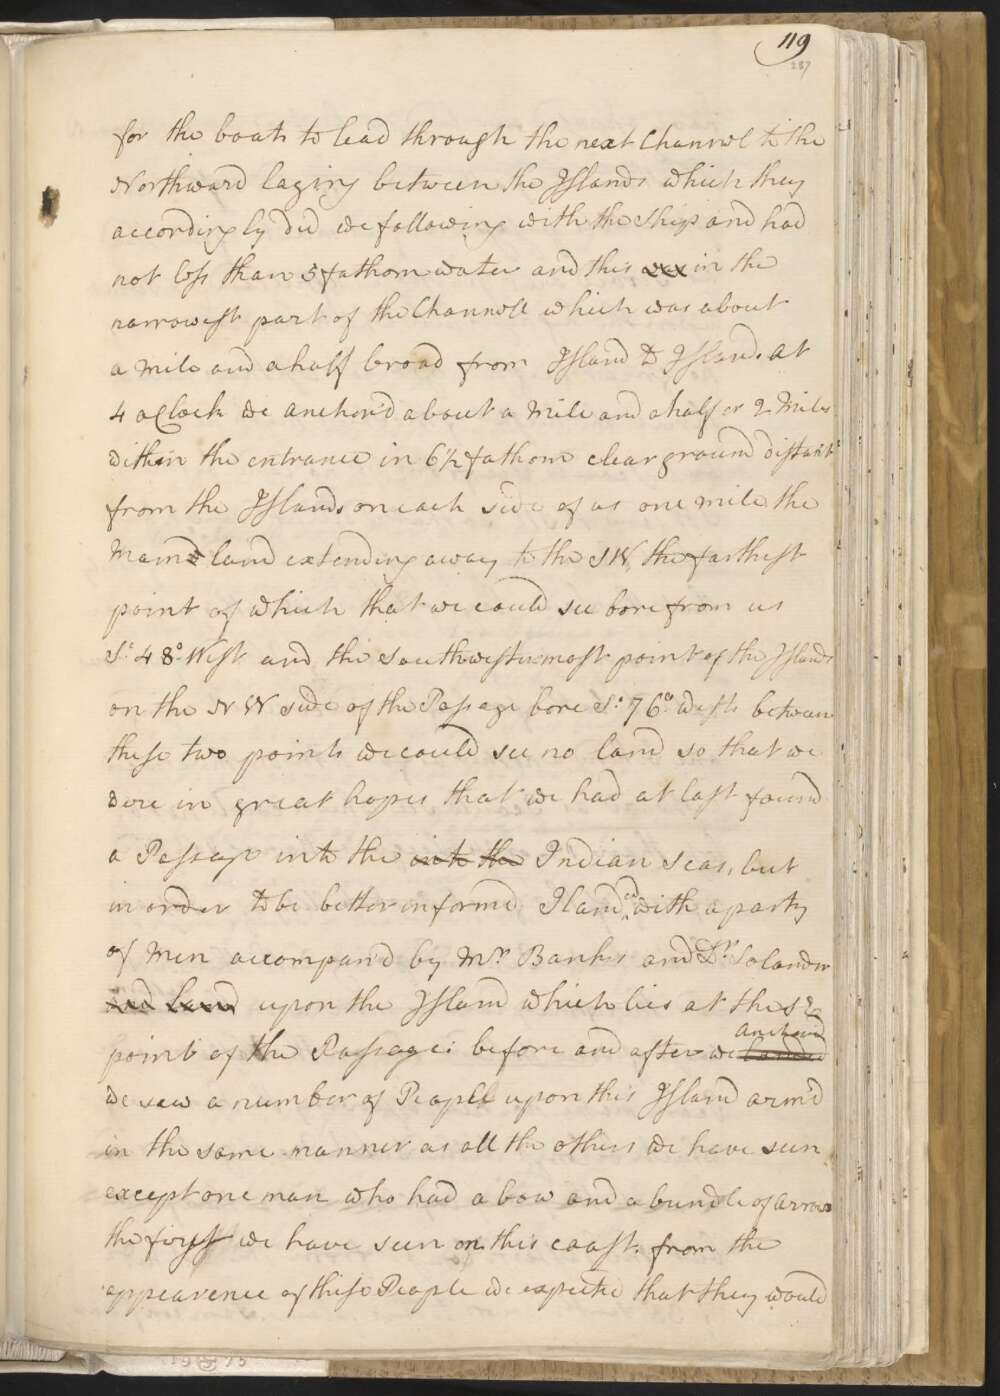 119
287
for the boats to lead through the next Channel to the
Northward laying between the Islands which they
accordingly did we following with the Ship and had
not less than 5 fathom water and this was in the
narrowest part of the Channell which was about
a Mile and a half broad from Island to Island. At
4 oClock we anchor'd about a Mile and a half or 2 Miles
within the entrance in 6½ fathom clear ground distant
from the Islands on each side of us one mile, the
Main land extending away to the SW, the farthest
point of which that we could see bore from us
So. 48° West and the Southwestermost point of the Islands
on the NW side of the Passage bore So. 76° West between
these two points we could see no land so that we
were in great hopes that we had at last found
a Passage into the into the Indian Seas, but
in order to be better informd I landed with a party
of Men accompan'd by Mr. Banks and Dr. Solander
and land upon the Island which lies at the SE
Anchord
point of the Passage: before and after we landed
we saw a number of People upon this Island arm'd
in the same manner as all the others we have seen
except one man who had a bow and a bundle of Arrows
the first we have seen on this coast. from the
appearence of these People we expected that they would